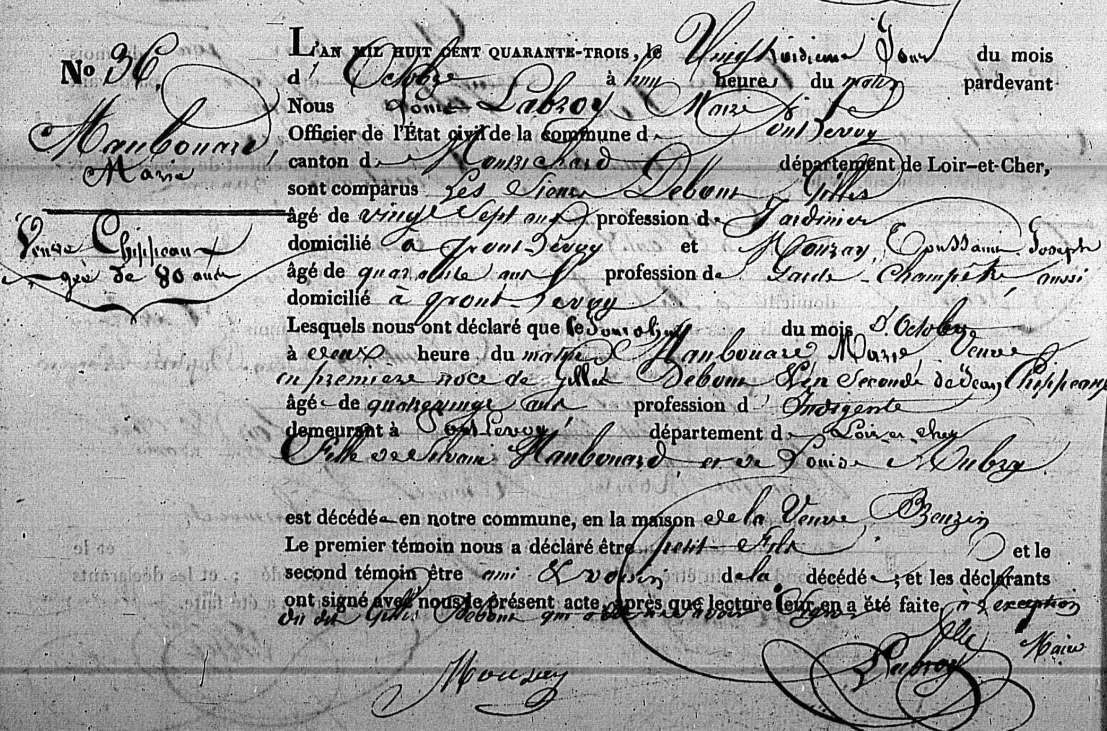 No 36.
Maubouard,
Marie
Veuve Chippeau
agée de 80 ans
L'AN MIL HUIT CENT QUARANTE-TROIS, le Vingt troisième Jour du mois
d' Octobre à heure du matin pardevant
Nous Louis Labroy Maire
Officier de l'État civil de la commune de Pontlevoy
canton de Montrichard département de Loir-et-Cher,
sont comparus Les Sieurs Debout Gilles
âgé de vingt Sept ans profession de Jardinier
domicilié à Pont-levoy et Mouzay, Toussaint Joseph
âgé de quarante ans profession de Garde-Champêtre, aussi
domicilié à Pont-levoy
Lesquels nous ont déclaré que le du mois d'Octobre
à deux heure du matin Maubouard Marie Veuve
en première noce de Gilles Debout & en Seconde de Jean Chippeau
âgée de quatrevingt ans profession d' Indigente
demeurant à Pontlevoy, département de Loir et cher
Fille de Silvain Maubouard, et de Louise Aubry
est décédée en notre commune, en la maison de la Veuve Beuzin
Le premier témoin nous a déclaré être petit-Fils et le
second témoin être ami & voisin de la décédée; et les déclarants
ont signé avec nous le présent acte, après que lecture leur en a été faite, à l'exception
du dit Gilles Debout qui a déclaré ne savoir Signer
Mouzay
Labroy
Maire